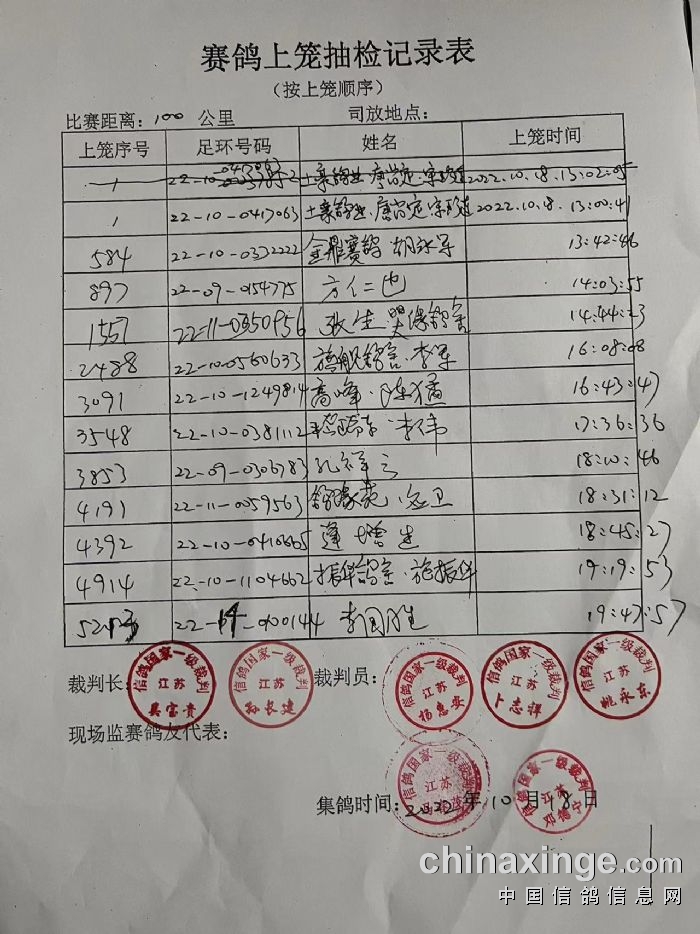 赛鸽上笼抽检记录表
(按上笼顺序)
比赛距离: 100 公里 司放地点:
上笼序号 足环号码 姓名 上笼时间
1 2022.10.18.13:02:05
1 22-10-0417063 2022.10.18.13:00:41
584 22-10-0372222 金鼎赛鸽 胡永军 13:42:46
897 22-09-0154775 方仁也 14:03:55
1557 22-11-0350956 14:44:23
2488 22-10-0560633 旗舰鸽舍·李军 16:08:08
3091 22-10-1249814 高峰·陈 16:43:47
3548 22-10-0381112 李伟 17:36:36
3853 22-09-0306783 孔祥云 18:10:46
4191 22-11-0059563 18:31:12
4392 22-10-0410665 18:45:27
4914 22-10-1104662 振华鸽舍·施振华 19:19:53
22-14-0000144 李国胜 19:47:57
裁判长: 裁判员:
信鸽国家一级裁判 江苏 吴宝贵
信鸽国家一级裁判 江苏 孙长建
信鸽国家一级裁判 江苏 杨惠安
信鸽国家一级裁判 江苏 卜志祥
信鸽国家一级裁判 江苏 姚永东
现场监赛鸽友代表:
信鸽国家一级裁判 江苏
信鸽国家一级裁判 江苏 邓德宁
集鸽时间: 2022年10月18日
chinaxinge.com
中国信鸽信息网